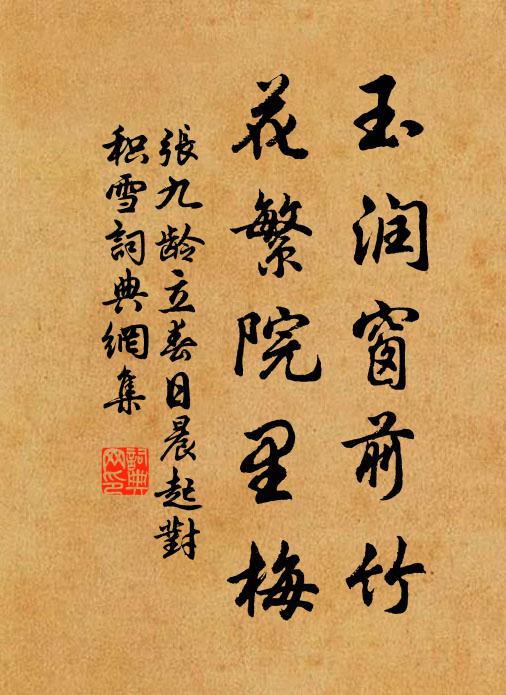 玉润窗前竹
花繁院里梅
張九龄立春日晨起對
积雪詞典網集
詞典
网印